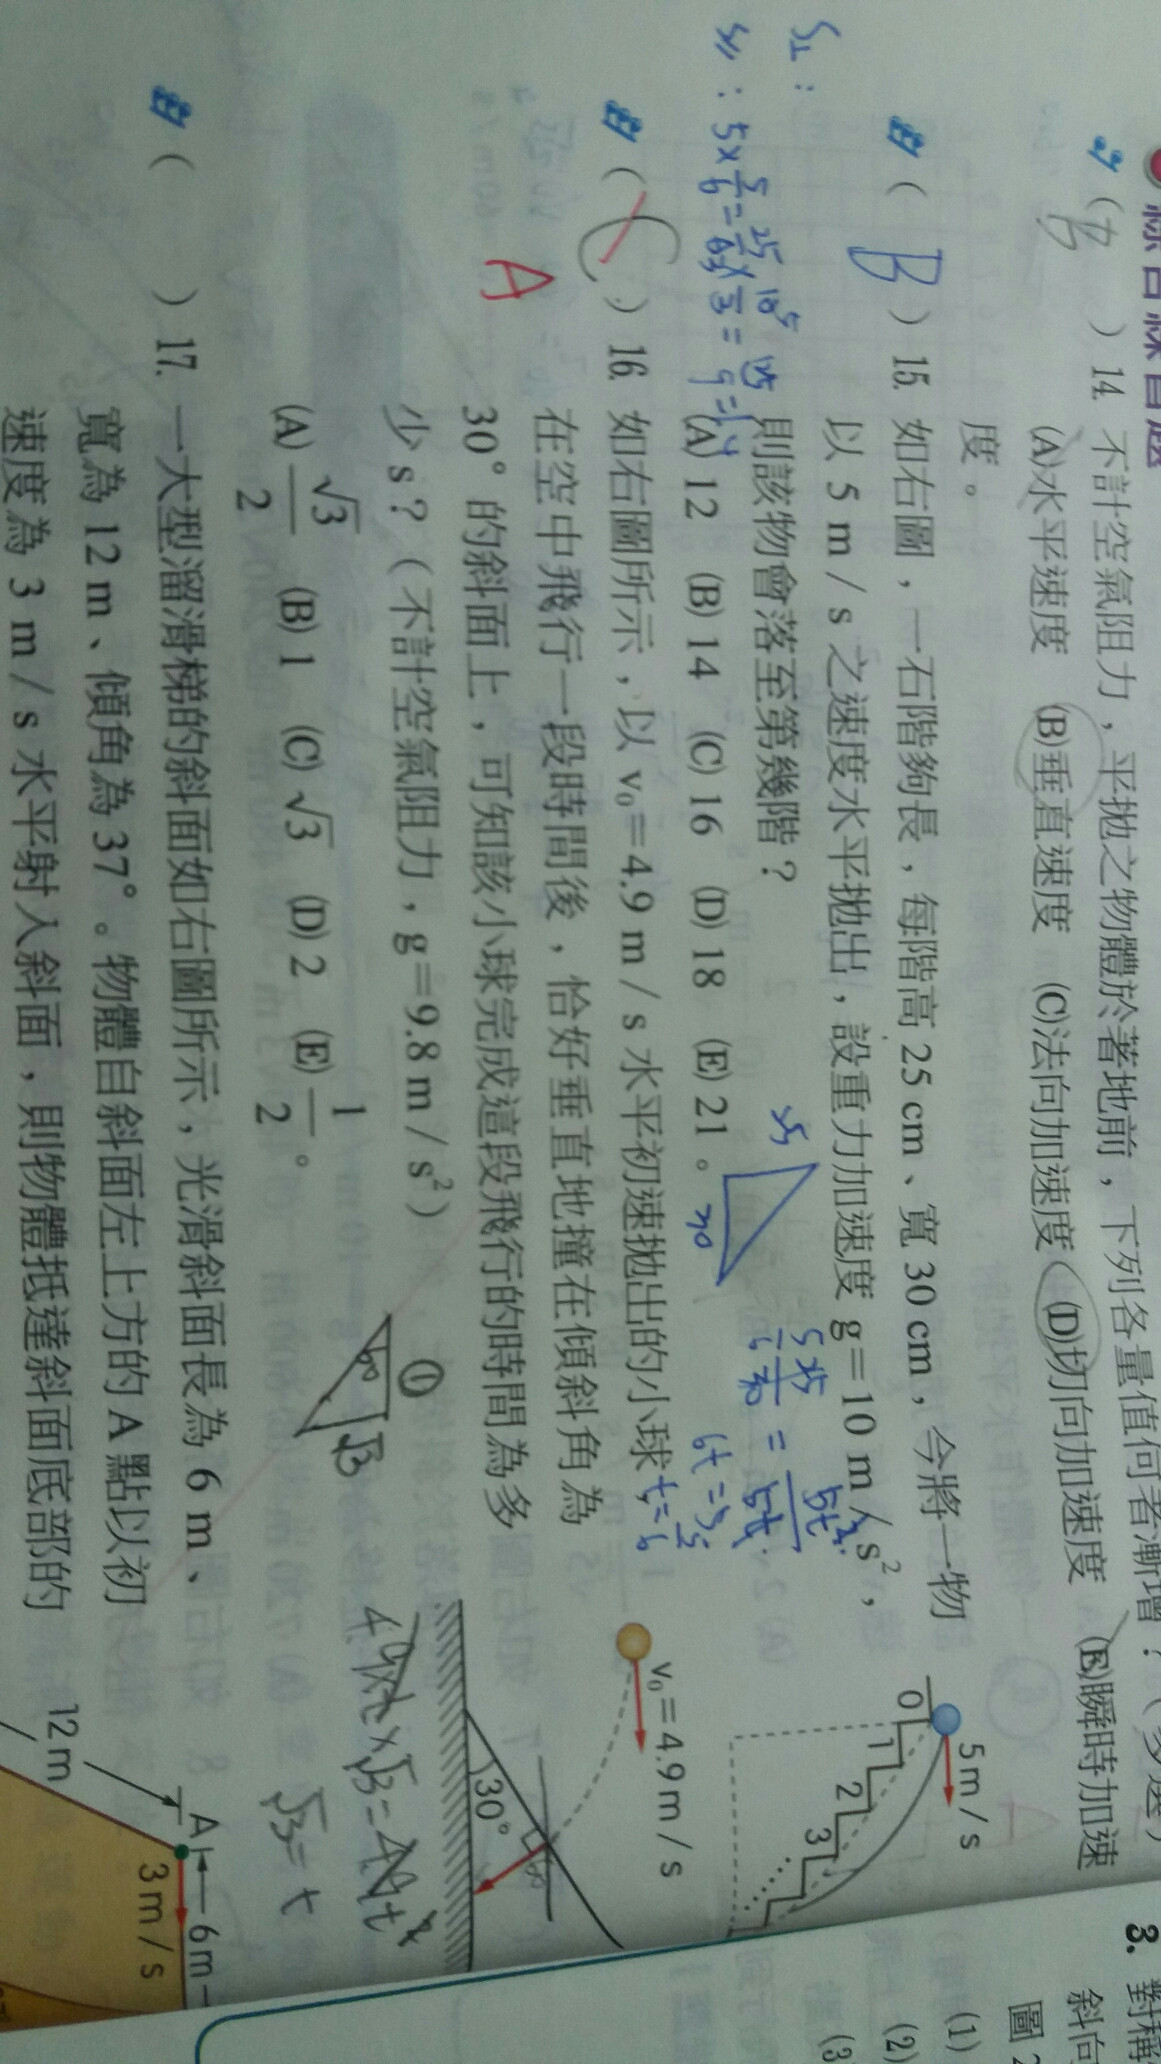 綜合練習題
(B) 14. 不計空氣阻力，平拋之物體於著地前，下列各量值何者漸增？（多選）
(A)水平速度 (B)垂直速度 (C)法向加速度 (D)切向加速度 (E)瞬時加速
度。
( B ) 15. 如右圖，一石階夠長，每階高 25 cm、寬 30 cm，今將一物
以 5 m / s 之速度水平拋出，設重力加速度 g＝10 m / s²，
則該物會落至第幾階？
(A) 12 (B) 14 (C) 16 (D) 18 (E) 21。
5 m / s
0
1
2
3
( C ) 16. 如右圖所示，以 v₀＝4.9 m / s 水平初速拋出的小球，
A
在空中飛行一段時間後，恰好垂直地撞在傾斜角為
30° 的斜面上，可知該小球完成這段飛行的時間為多
少 s？（不計空氣阻力，g＝9.8 m / s²）
(A) √3/2 (B) 1 (C) √3 (D) 2 (E) 1/2。
v₀＝4.9 m / s
30°
①
√3
√3 = t
( ) 17. 一大型溜滑梯的斜面如右圖所示，光滑斜面長為 6 m、
寬為 12 m、傾角為 37°。物體自斜面左上方的 A 點以初
速度為 3 m / s 水平射入斜面，則物體抵達斜面底部的
12 m
A
6 m
3 m / s
3. 對稱
斜向
圖 2
(1)
(2)
(3